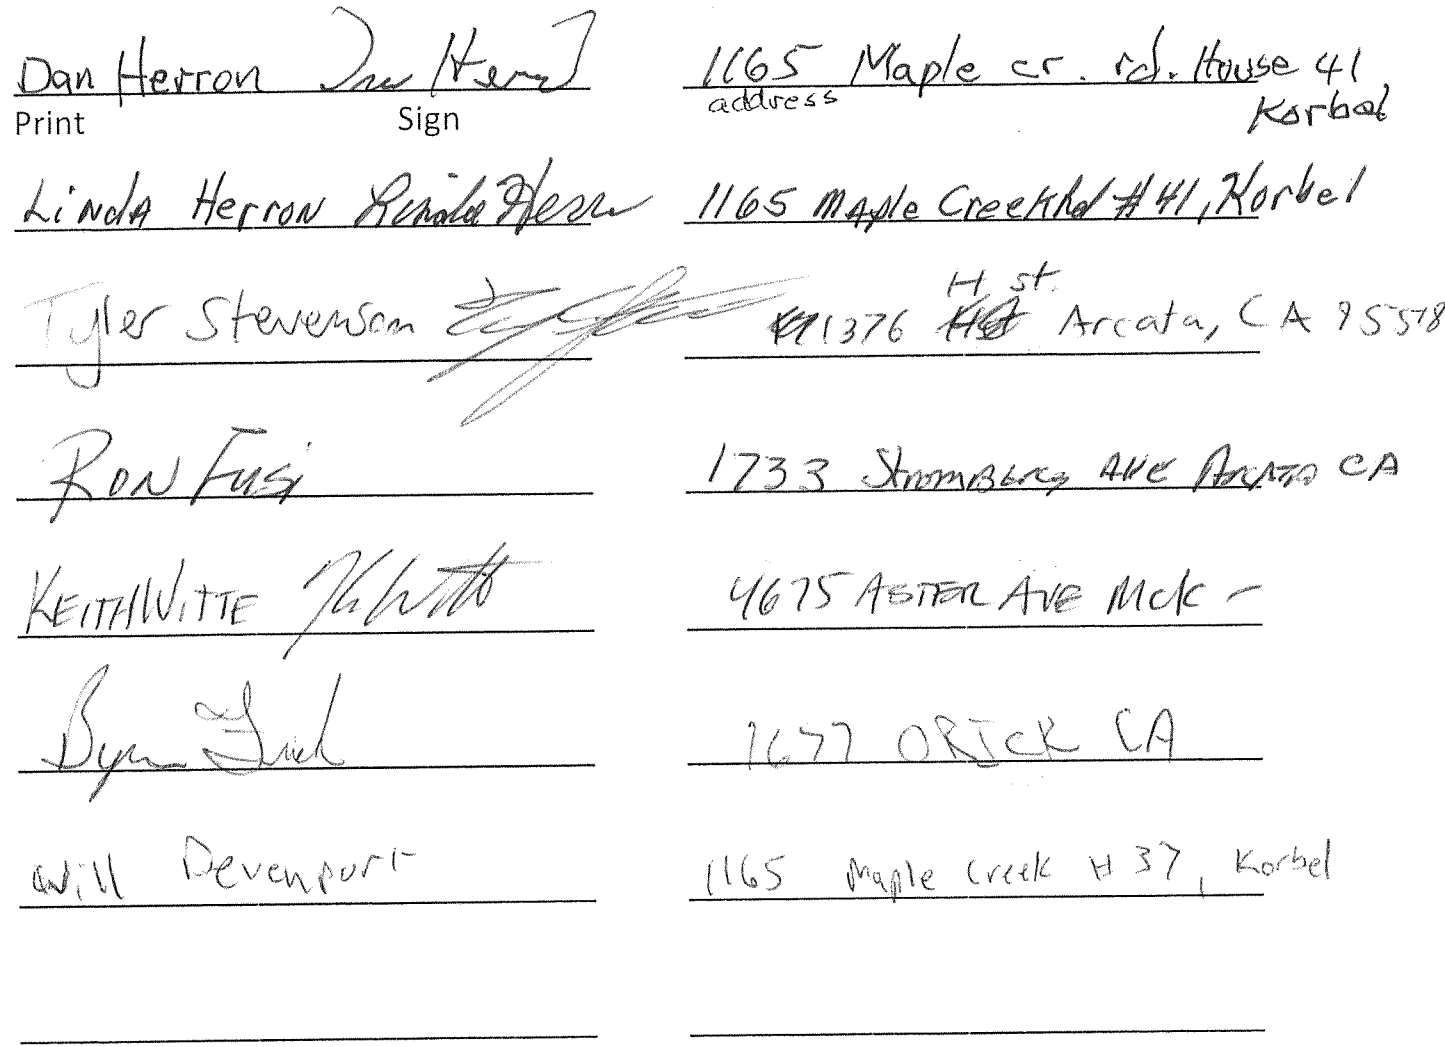 Dan Herron Dan Herron 1165 Maple cr. rd. House 41
Print Sign address Korbel
Linda Herron Linda Herron 1165 Maple Creek Rd #41, Korbel
H st.
Tyler Stevenson 1376 Arcata, CA 95518
Ron Fusi 1733 Stromberg AVE Arcata CA
KEITH WITTE K Witte 4675 ASTER AVE McK -
1677 ORICK CA
Will Devenport 1165 Maple Creek # 37, Korbel